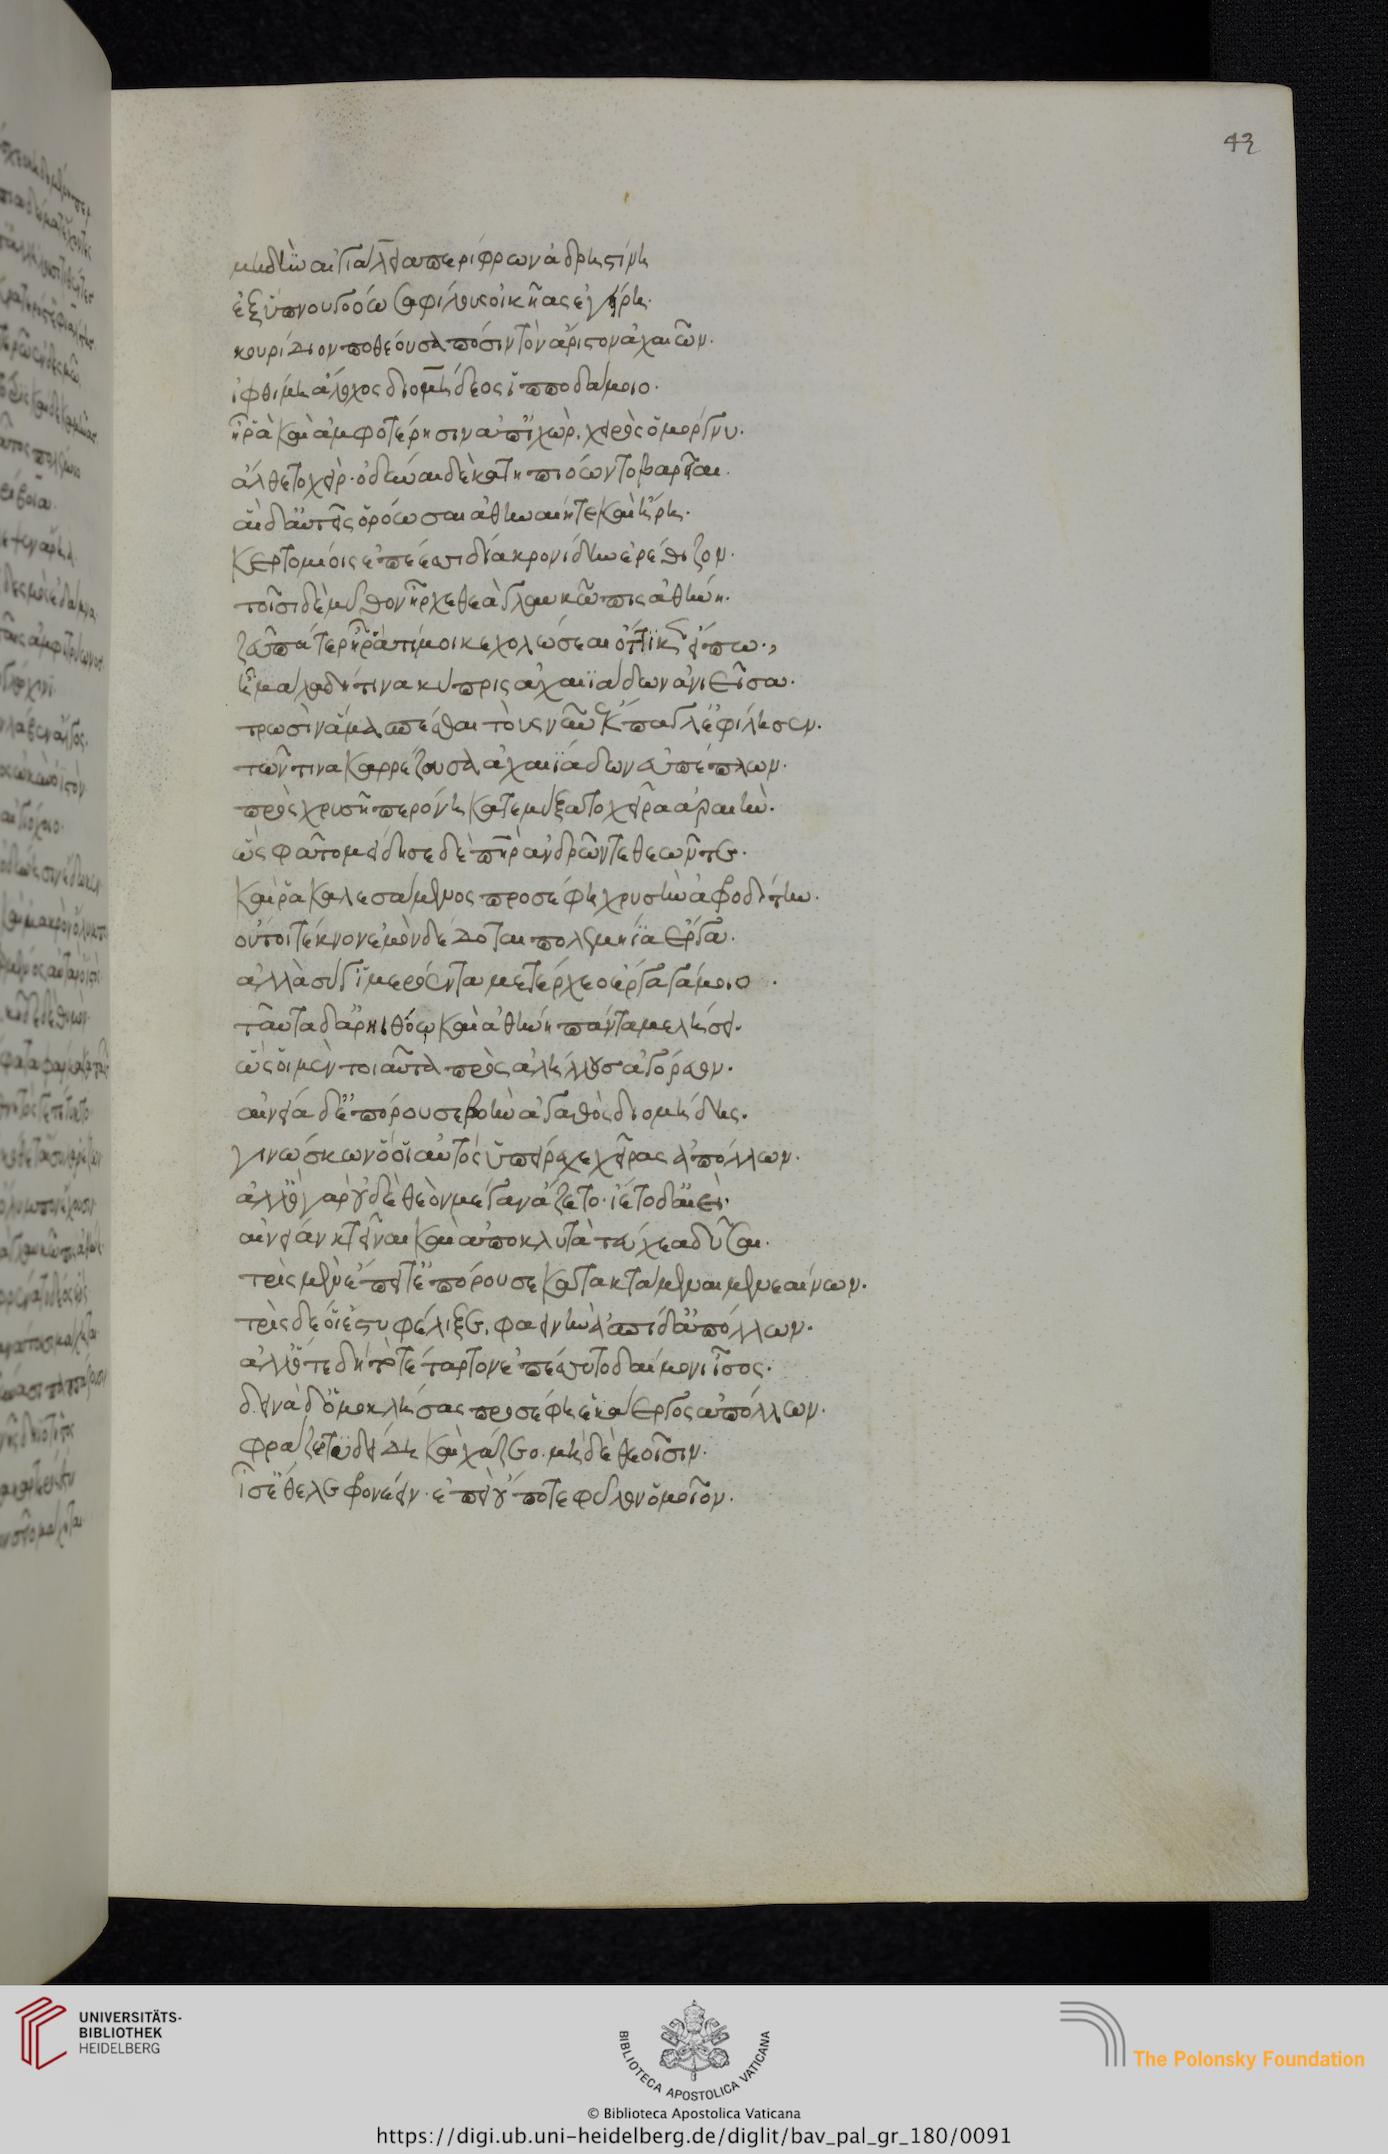 43
μὴ δὴν αἰγιάλεια περίφρων ἀδρηστίνη
ἐξ ὕπνου γοόωσα φίλους οἰκῆας ἐγείρη.
κουρίδιον ποθέουσα πόσιν τὸν ἄριστον ἀχαιῶν.
ἰφθίμη ἄλοχος διομήδεος ἱπποδάμοιο.
ἦ ῥα καὶ ἀμφοτέρησιν ἀπ' ἰχὼρ χειρὸς ὀμόργνυ.
ἄλθετο χείρ. ὀδύναι δὲ κατηπιόωντο βαρεῖαι.
αἳ δ' αὖτ' εἰσορόωσαι ἀθηναίη τε καὶ ἥρη.
κερτομίοις ἐπέεσσι δία κρονίδην ἐρέθιζον.
τοῖσι δὲ μύθων ἦρχε θεὰ γλαυκῶπις ἀθήνη.
ζεῦ πάτερ ἦ ῥά τί μοι κεχολώσεαι ὅττί κεν εἴπω.
ἦ μάλα δή τινα κύπρις ἀχαιϊάδων ἀνιεῖσα.
τρωσὶν ἅμα σπέσθαι τοὺς νῦν ἔκπαγλ' ἐφίλησεν.
τῶν τινα καρρέζουσα ἀχαιϊάδων εὐπέπλων.
πρὸς χρυσῆ περόνη κατεμύξατο χεῖρα ἀραιήν.
ὣς φάτο μείδησε δὲ πατὴρ ἀνδρῶν τε θεῶν τε.
καί ῥα καλεσάμενος προσέφη χρυσῆν ἀφροδίτην.
οὔ τοι τέκνον ἐμὸν δέδοται πολεμήϊα ἔργα.
ἀλλὰ σύ γ' ἱμερόεντα μετέρχεο ἔργα γάμοιο.
ταῦτα δ' ἄρηϊ θοῷ καὶ ἀθήνη πάντα μελήσει.
ὣς οἱ μὲν τοιαῦτα πρὸς ἀλλήλους ἀγόρευον.
αἰνεία δ' ἐπόρουσε βοὴν ἀγαθὸς διομήδης.
γινώσκων ὅ οἱ αὐτὸς ὑπείρεχε χεῖρας ἀπόλλων.
ἀλλ' ὅ γ' ἄρ' οὐδὲ θεὸν μέγαν ἅζετο. ἵετο δ' αἰεὶ.
αἰνείαν κτεῖναι καὶ ἀπὸ κλυτὰ τεύχεα δῦσαι.
τρὶς μὲν ἔπειτ' ἐπόρουσε κατακτάμεναι μενεαίνων.
τρὶς δέ οἱ ἐστυφέλιξε φαεινὴν ἀσπίδ' ἀπόλλων.
ἀλλ' ὅτε δὴ τὸ τέταρτον ἐπέσσυτο δαίμονι ἶσος.
δεινὰ δ' ὁμοκλήσας προσέφη ἑκάεργος ἀπόλλων.
φράζεο τυδείδη καὶ χάζεο. μὴ δὲ θεοῖσιν.
ἶσ' ἔθελε φρονέειν. ἐπεὶ οὔ ποτε φῦλον ὁμοῖον.
UNIVERSITÄTS-
BIBLIOTHEK
HEIDELBERG
BIBLIOTECA APOSTOLICA VATICANA
The Polonsky Foundation
© Biblioteca Apostolica Vaticana
https://digi.ub.uni-heidelberg.de/diglit/bav_pal_gr_180/0091